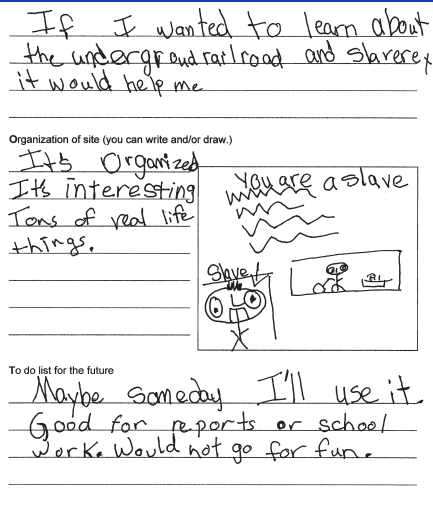 If I wanted to learn about
the undergroud railroad and slaverey
it would help me
Organization of site (you can write and/or draw.)
It's Organized
It's interesting
Tons of real life
things.
You are a slave
Slave
To do list for the future
Maybe someday I'll use it.
Good for reports or school
work. Would not go for fun.